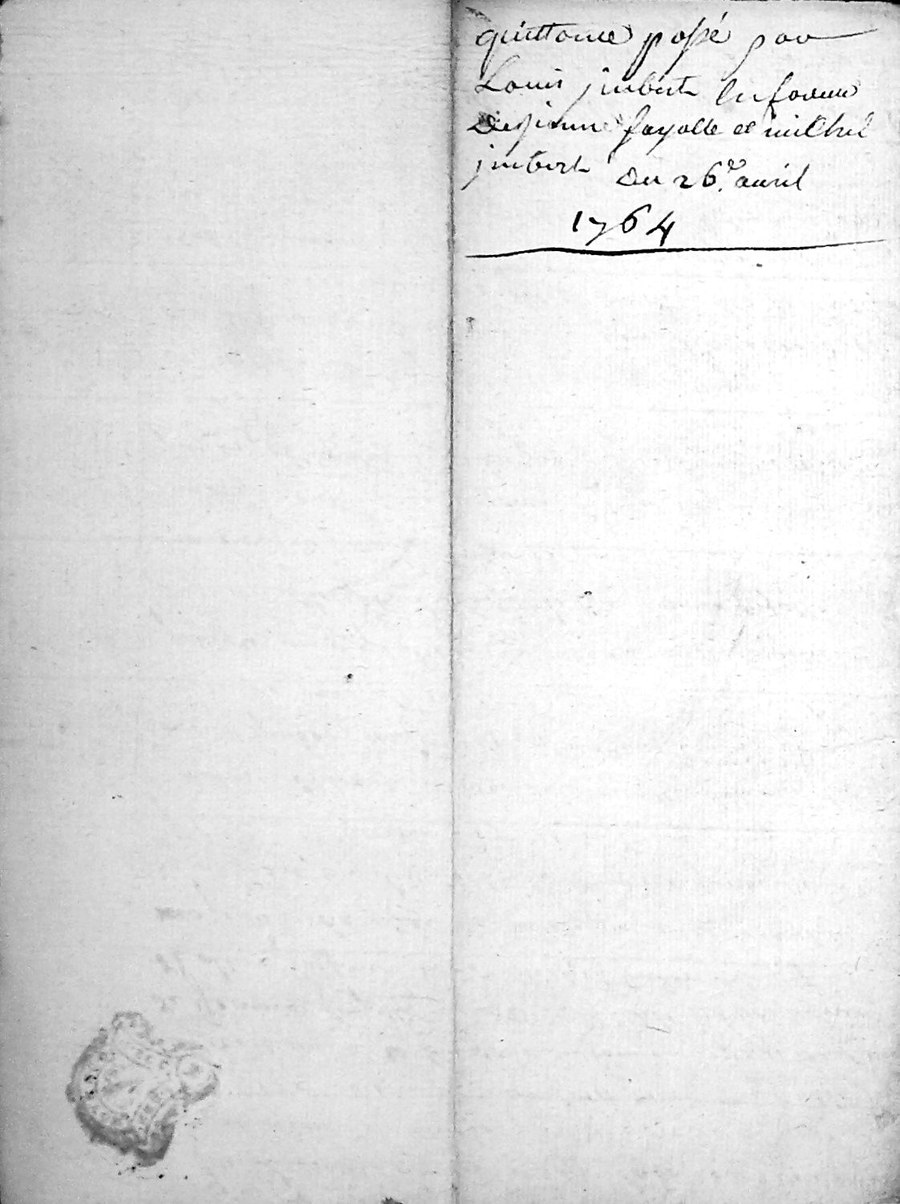 quittance passé par
Louis jmbert en faveur
De jeanne fayolle et michel
jmbert Du 26.e auril
1764